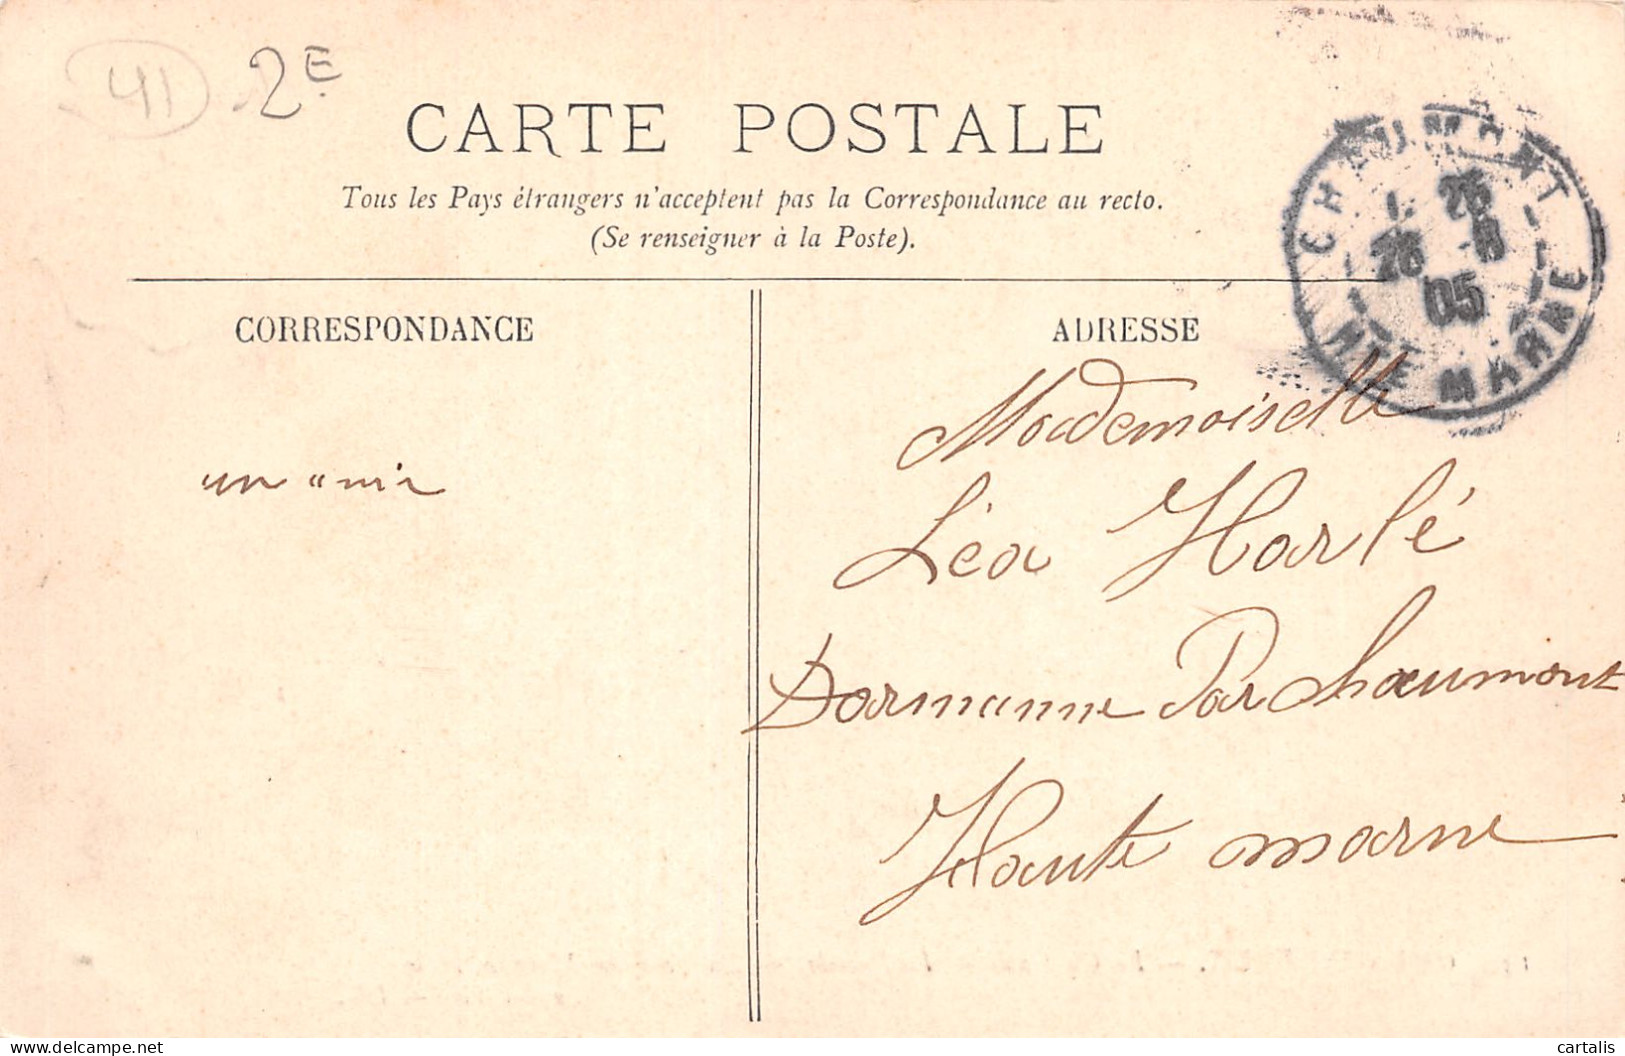 41 2E
CARTE POSTALE
Tous les Pays étrangers n'acceptent pas la Correspondance au recto.
(Se renseigner à la Poste).
CHAUMONT
26
28 8
05
HTE MARNE
CORRESPONDANCE
ADRESSE
un amie
Mademoiselle
Léa Harlé
Darmanne Par Chaumont
Haute marne
delcampe.net
cartalis